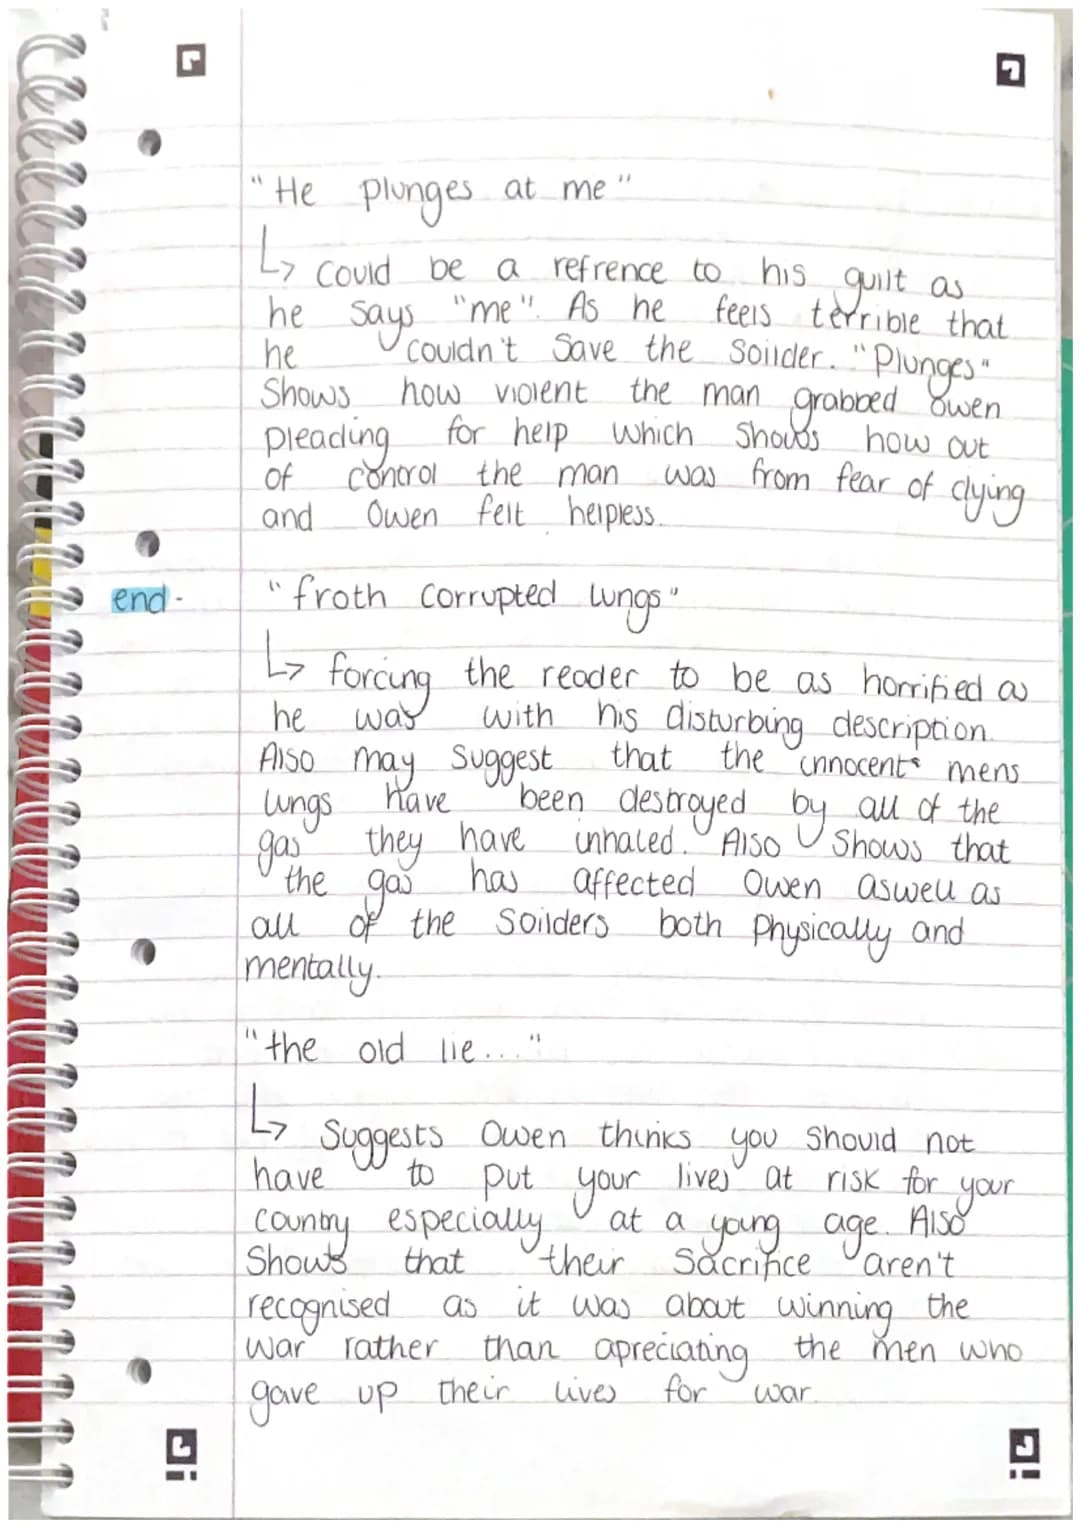 "He plunges at me"
↳ Could be a refrence to his guilt as
he says "me". As he feels terrible that
he couldn't save the Soilder. "Plunges"
Shows how violent the man grabbed Owen
pleading for help which Shows how out
of control the man was from fear of dying
and Owen felt helpless.
end - "froth corrupted lungs"
↳ forcing the reader to be as horrified as
he was with his disturbing description.
Also may Suggest that the innocents mens
lungs have been destroyed by all of the
gas they have inhaled. Also Shows that
the gas has affected Owen aswell as
all of the Soilders both Physically and
mentally.
"the old lie..."
↳ Suggests Owen thinks you Should not
have to put your lives at risk for your
country especially at a young age. Also
Shows that their Sacrifice aren't
recognised as it was about winning the
war rather than apreciating the men who
gave up their lives for war.